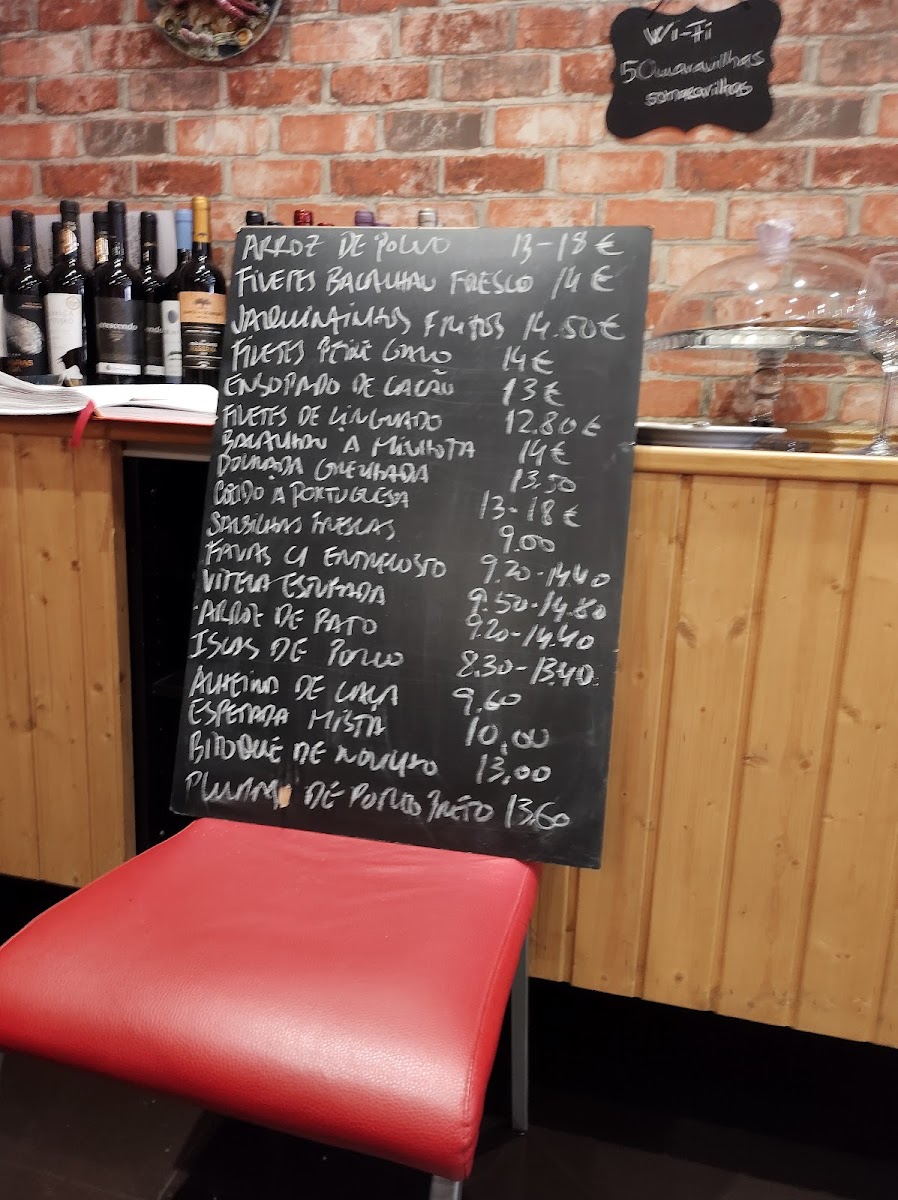 Wi-Fi
50maravilhas
50maravilhas
ARROZ DE POLVO 13-18€
FILETES BACALHAU FRESCO 14€
JAQUINZINHOS FRITOS 14.50€
FILETES PEIXE GALO 14€
ENSOPADO DE CAÇÃO 13€
FILETES DE LINGUADO 12.80€
BACALHAU A MINHOTA 14€
DOURADA GRELHADA 13.50
COZIDO A PORTUGUESA 13-18€
SALSICHAS FRESCAS 9.00
FAVAS C/ ENTRECOSTO 9.20-14.40
VITELA ESTUFADA 9.50-14.80
ARROZ DE PATO 9.20-14.40
ISCAS DE PORCO 8.30-13.40
ALHEIRA DE CAÇA 9.60
ESPETADA MISTA 10,00
BITOQUE DE NOVILHO 13,00
PLUMA DE PORCO PRETO 13.60